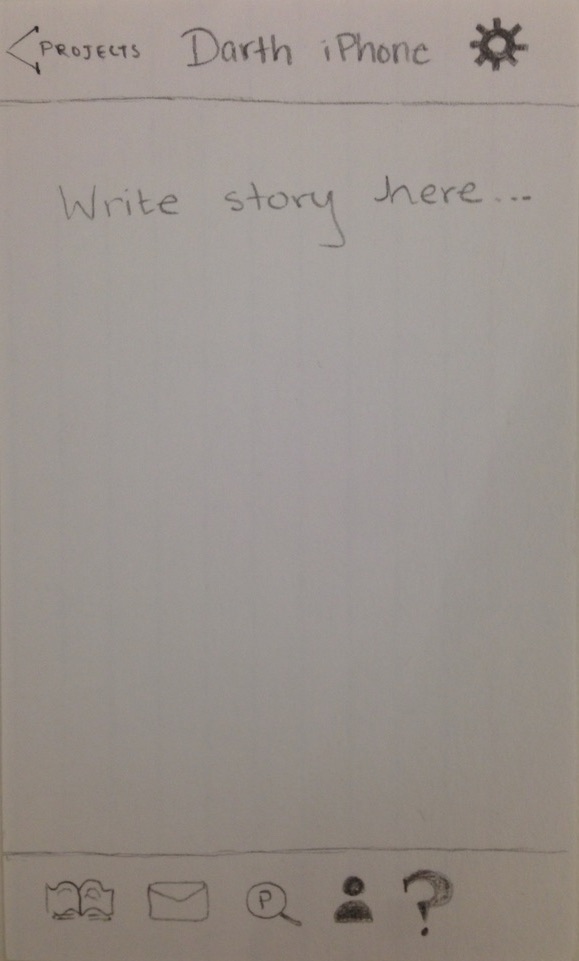 PROJECTS Darth iPhone
Write story here...
P ?